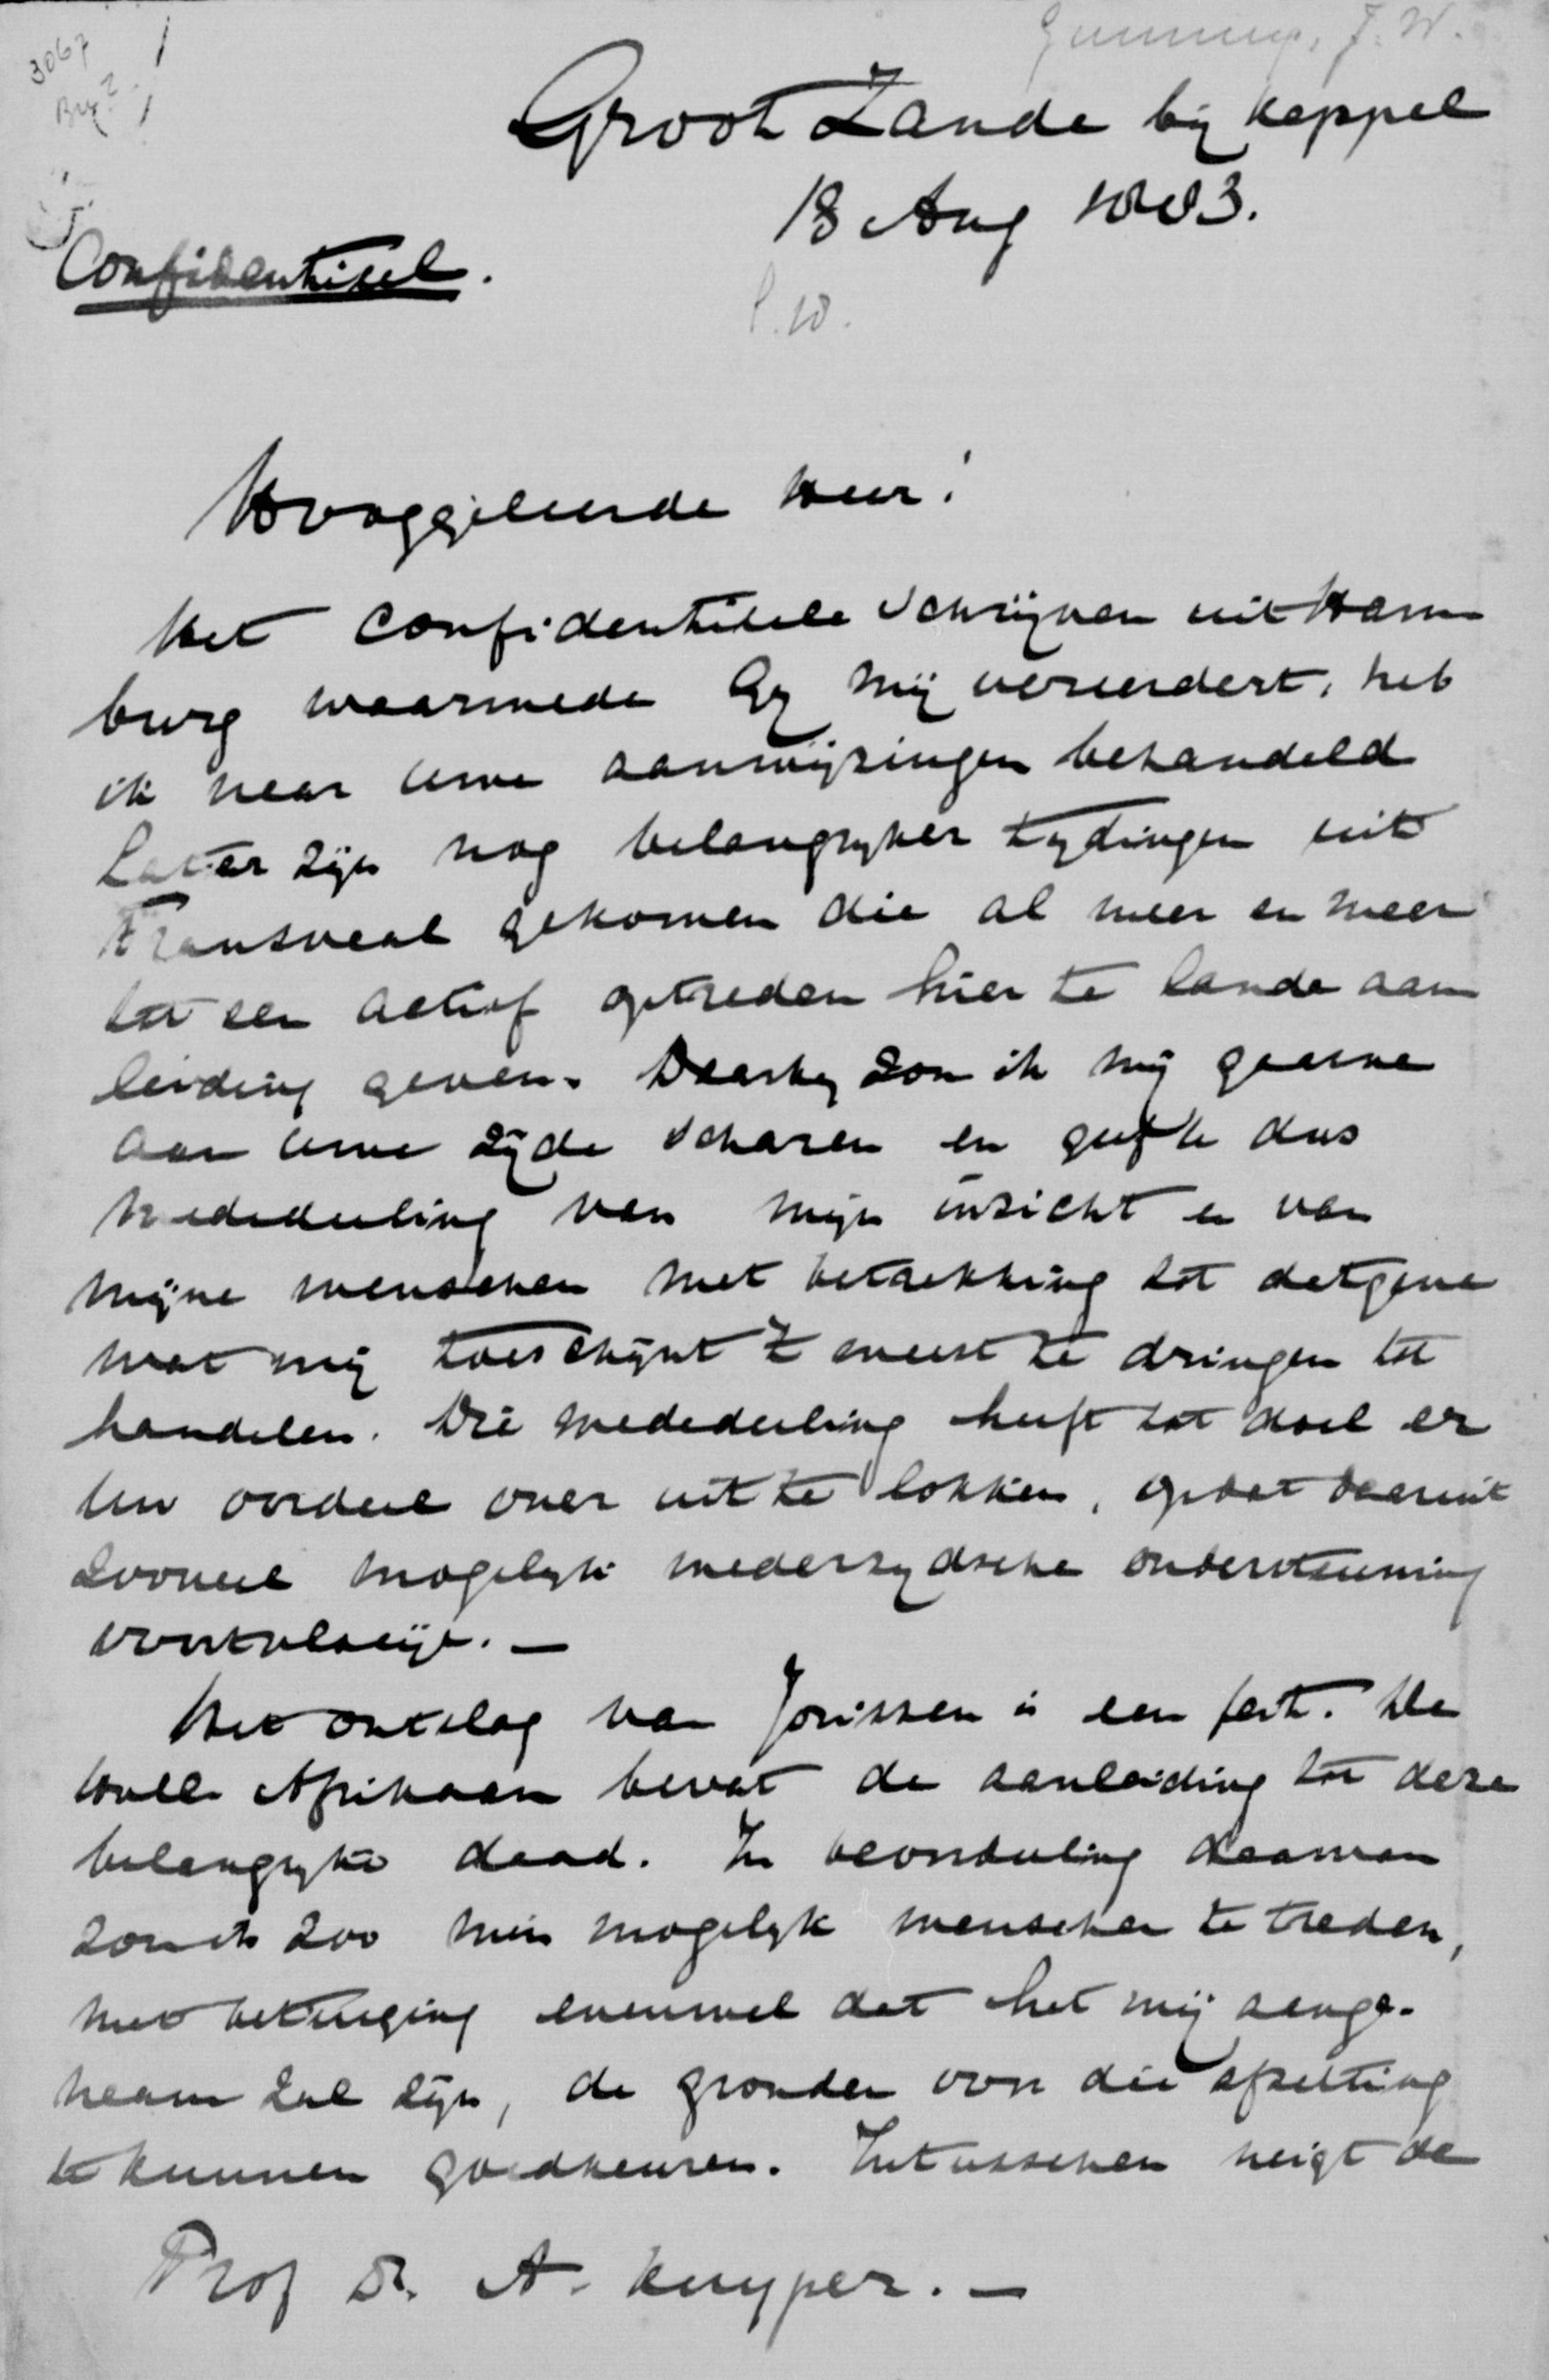 3067
Gunning, J. W.
Groot Zande bij Keppel
18 Aug 1883.
Confidentieel.
Hooggeleerde Heer!
Het confidentiele schrijven uit Ham
burg waarmede Gy mij vereerdert, heb
ik naar Uwe aanwijzingen behandeld
Later zijn nog belangryker tydingen uit
Transvaal gekomen die al meer en meer
tot een actief optreden hier te lande aan
leiding geven. Daarby zou ik mij gaarne
aan Uwe zijde scharen en geef U dus
mededeeling van mijn inzicht en van
mijne menschen met betrekking tot datgene
wat mij toeschijnt 't meest te dringen tot
handelen. Die mededeeling heeft tot doel er
Uw oordeel over uit te lokken, opdat daaruit
zooveel mogelyk wederzydsche ondersteuning
voortvloeije. —
Het ontslag van Jorissen is een feit. De
Holl. Afrikaan bevat de aanleiding tot deze
belangryke daad. In beoordeeling daarvan
zou ik zoo min mogelyk wenschen te treden,
met betuiging evenwel dat het mij aange-
naam zal zijn, de gronden voor die afzetting
te kunnen goedkeuren. Intusschen neigt de
Prof Dr. A. Kuyper. —